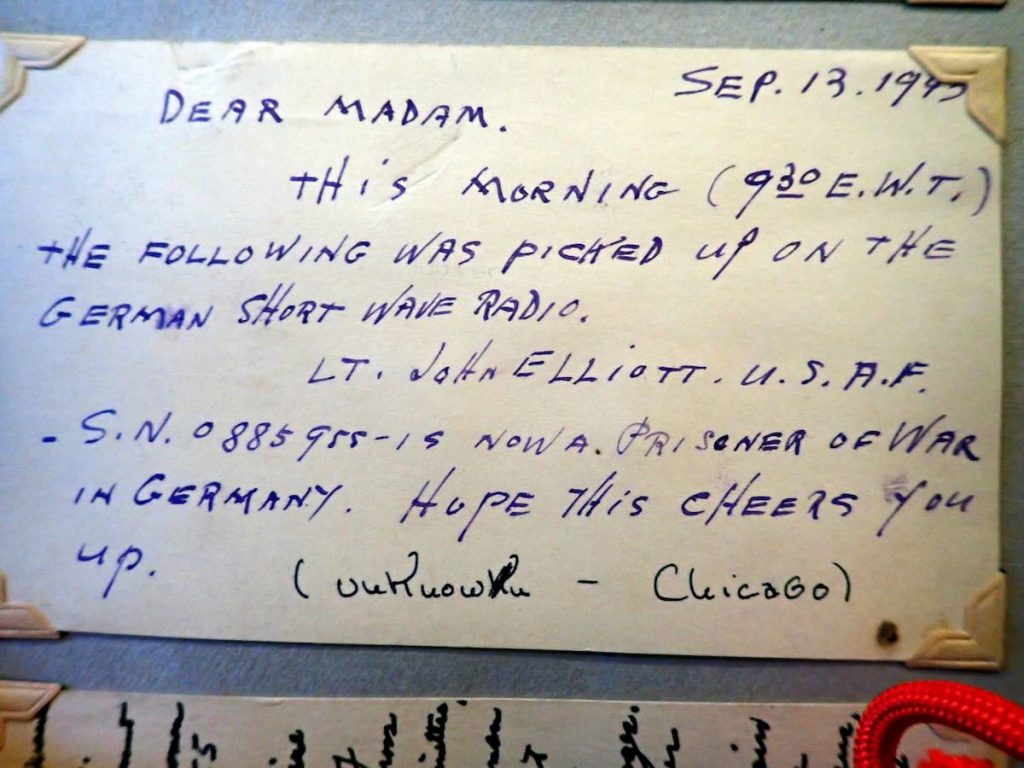 SEP. 13. 194
DEAR MADAM.
THIS MORNING (930 E.W.T.)
THE FOLLOWING WAS PICKED UP ON THE
GERMAN SHORT WAVE RADIO.
LT. JOHN ELLIOTT. U.S.A.F.
- S.N. 0885955 - IS NOW A. PRISONER OF WAR
IN GERMANY. HOPE THIS CHEERS YOU
UP.
(UNKNOWN - CHICAGO)